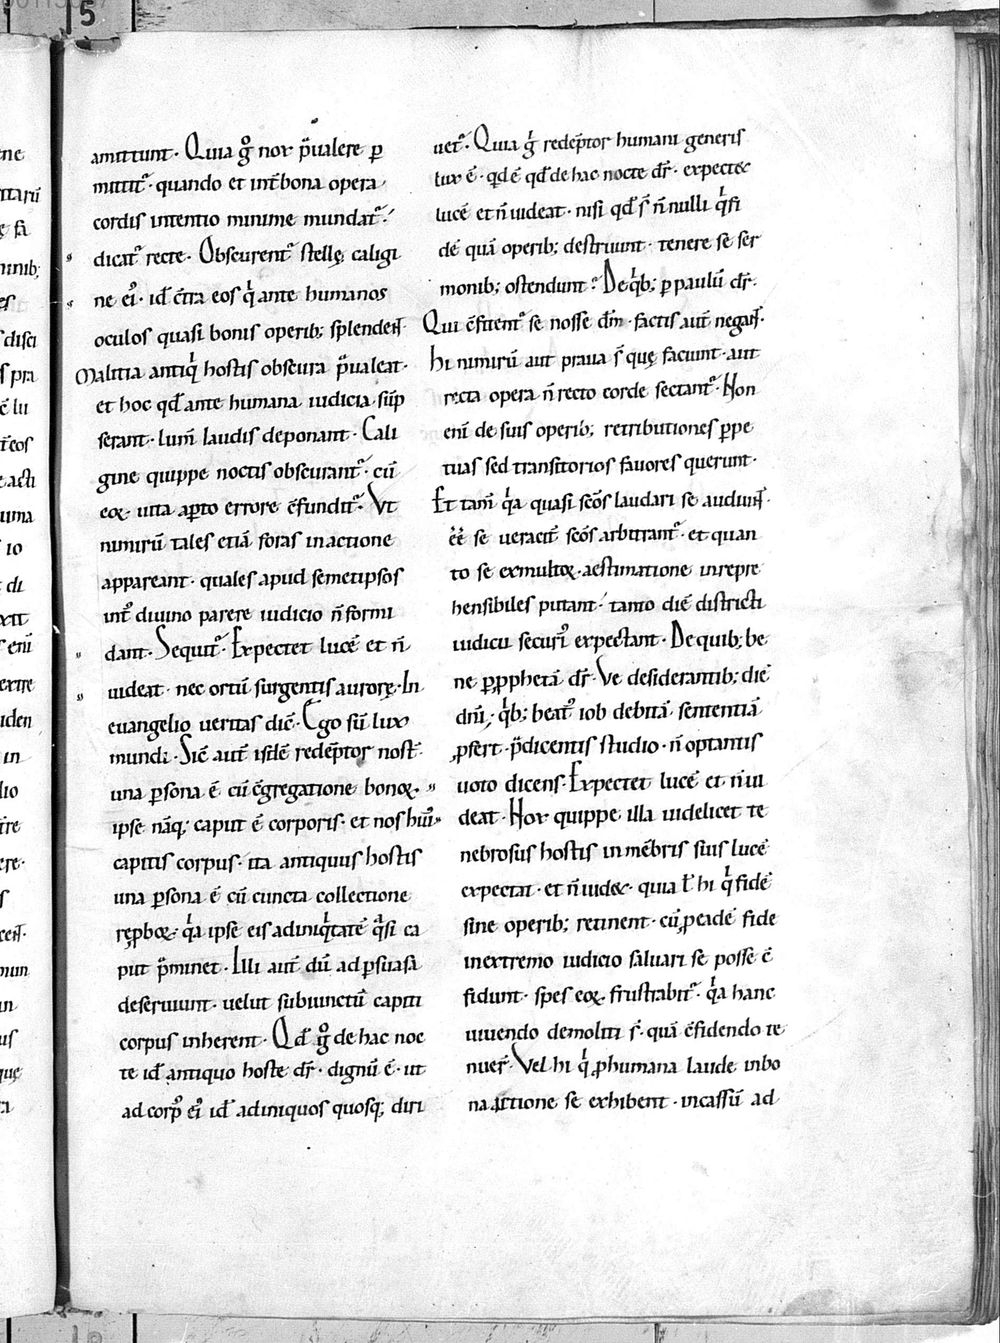 amittunt. Quia g̊ nox p̃ualere p
mittit᷑. quando et int̃ bona opera
cordis intentio minime mundat᷑.
dicat᷑ recte. Obscurent᷑ stellę caligi
ne ei᷒. id ẽ c̃tra eos q̇ ante humanos
oculos quasi bonis operib; splendent
Malitia antiq̇ hostis obscura p̃ualeat.
et hoc qđ ante humana iudicia sūp
serant. lum̃ laudis deponant. Cali
gine quippe noctis obscurant᷑. cū
eoꝝ uita aꝑto errore c̃fundit᷑. Vt
nimirū tales etiā foras in actione
appareant. quales apud semetipsos
int̃ diuino parere iudicio ñ formi
dant. Sequit᷑. Expectet lucē et ñ
uideat. nec ortū surgentis aurorę. In
euangelio ueritas dic̃. Ego sū lux
mundi. Sic̃ aut̃ isdē redēptor nost̃
una ꝑsona ē cū c̃gregatione bonoꝝ.
ipse nāq; caput ē corporis. et nos hui᷒
capitis corpus. ita antiquus hostis
una ꝑsona ē cū cuncta collectione
reꝓboꝝ. q̇a ipse eis ad iniq̇tatē q̃si ca
put p̃minet. Illi aut̃ dū ad ꝑsuasa
deseruiunt. uelut subiunctū capiti
corpus inherent. Qđ g̊ de hac noc
te id ẽ antiquo hoste dr̃. dignū ē. ut
ad corp᷒ ei᷒ id ẽ ad iniquos quosq; diri
uet᷑. Quia g̊ redēptor humani generis
lux ē. qid ē qđ de hac nocte dr̃. expectet
lucē et ñ uideat. nisi qđ s̃ ñnulli q̇ fi
dē quā operib; destruunt. tenere se ser
monib; ostendunt? De q̇b; ꝑ paulū dr̃.
Qui c̃fitent᷑ se nosse dm̃. factis aut̃ negant.
hi nimirū aut praua s̃ quę faciunt. aut
recta opera ñ recto corde sectant᷑. Non
eni de suis operib; retributiones ꝑpe
tuas sed transitorios fauores querunt.
Et tam̃ q̇a quasi sc̃os laudari se audiunt.
ēē se ueracit̃ sc̃os arbitrant᷑. et quan
to se ex multoꝝ aestimatione inrepre
hensibiles putant. tanto diē districti
iudicii securi᷒ expectant. De quib; be
ne ꝑ ꝓphetā dr̃. Ve desiderantib; diē
dñi. q̇b; beat᷒ iob debitā sententiā
ꝓfert. p̃dicentis studio. ñ optantis
uoto dicens. Expectet lucē et ñ ui
deat. Nox quippe illa uidelicet te
nebrosus hostis in mēbris suis lucē
expectat. et ñ uidet. quia ł hi q̇ fidē
sine operib; retinent. cū ꝓ eadē fide
in extremo iudicio saluari se posse c̃
fidunt. spes eoꝝ frustrabit᷑. q̇a hanc
uiuendo demoliti s̃. quā c̃fidendo te
nuer̃. Vel hi q̇ ꝓ humana laude in bo
na actione se exhibent. incassū ad